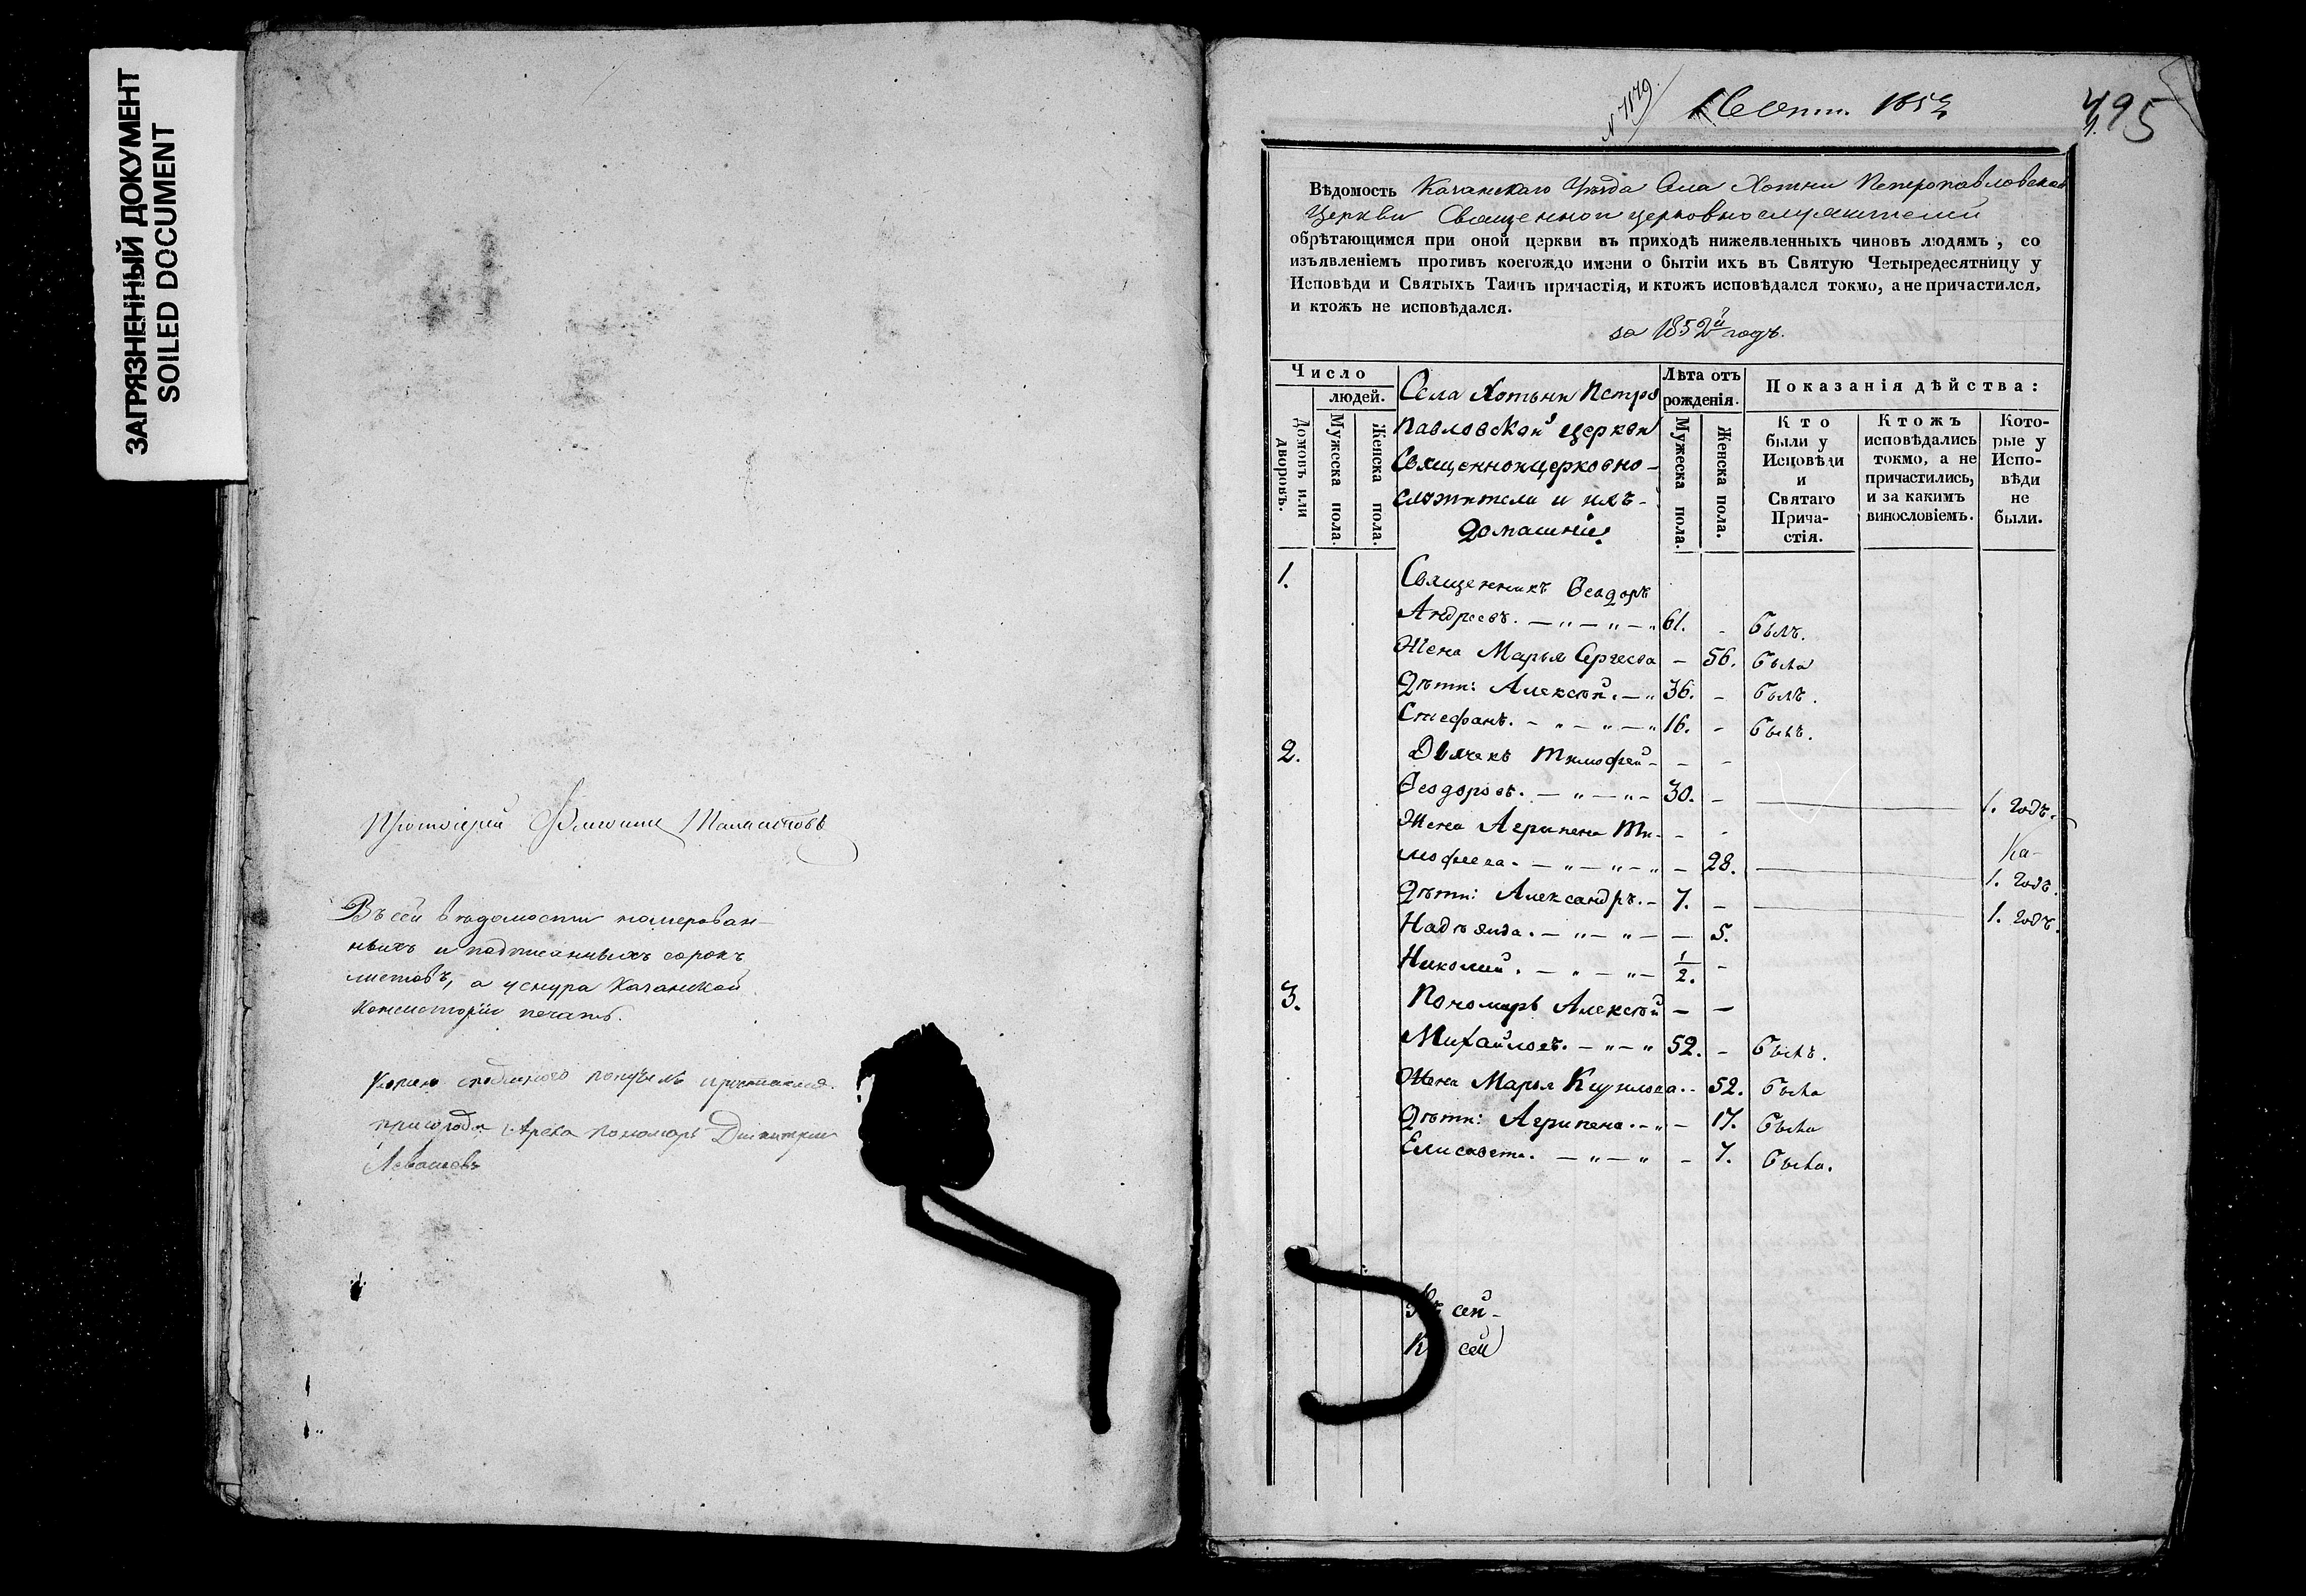 ЗАГРЯЗНЕННЫЙ ДОКУМЕНТ
SOILED DOCUMENT
Протоіерей
Въ сей вѣдомости номерован-
ныхъ и подписанныхъ сорокъ
листовъ, а у снура Казанской
Консисторіи печать.
пригорода Арска пономарь Димитрій
Левашевъ
N 7179.
Сент. 1852
495
1.
Вѣдомость Казанскаго Уѣзда Села Хотни Петропавловской
Церкви Священно и церковнослужители
обрѣтающимся при оной церкви въ приходѣ нижеявленныхъ чиновъ людямъ, со
изъявленіемъ противъ коегождо имени о бытіи ихъ въ Святую Четыредесятницу у
Исповѣди и Святыхъ Таинъ причастія, и ктожъ исповѣдался токмо, а не причастился,
и ктожъ не исповѣдался.
за 1852й годъ.
Число
людей.
Домовъ или дворовъ.
Мужеска пола.
Женска пола.
Села Хотьни Петро
павловской церкви
Священноицерковно-
служители и ихъ-
домашніе.
Лѣта отъ
рожденія.
Мужеска пола.
Женска пола.
Показанія дѣйства:
Кто
были у
Исповѣди
и
Святаго
Прича-
стія.
Ктожъ
исповѣдались
токмо, а не
причастились,
и за какимъ
винословіемъ.
Кото-
рые у
Испо-
вѣди
не
были.
1. Священникъ Ѳеодоръ
Андреевъ. — „ — „ — „ 61. - былъ.
Жена Марья Сергеева — 56. была
Дѣти: Алексѣй. — „ 36. - былъ.
Стефанъ. - „ — „ — „ 16. - былъ.
2. Дьячекъ Тимофей - - -
Ѳеодоровъ. — „ — „ - 30. - — 1. годъ.
Жена Агрипена Ти- - -
мофеева. — „ — „ - „ — 28. — 1. годъ.
Дѣти: Александръ. - 7. - — 1. годъ.
Надѣжда. — „ — „ — — 5.
Николай. — „ — „ — 1/2. -
3. Пономарь Алексѣй — —
Михайловъ. — „ — „ 52. - былъ.
Жена Марья Кузмова. - 52. была
Дѣти: Агрипена. - „ — 17. была
Елисавета. — „ — „ - 7. была.
сей -
К сей